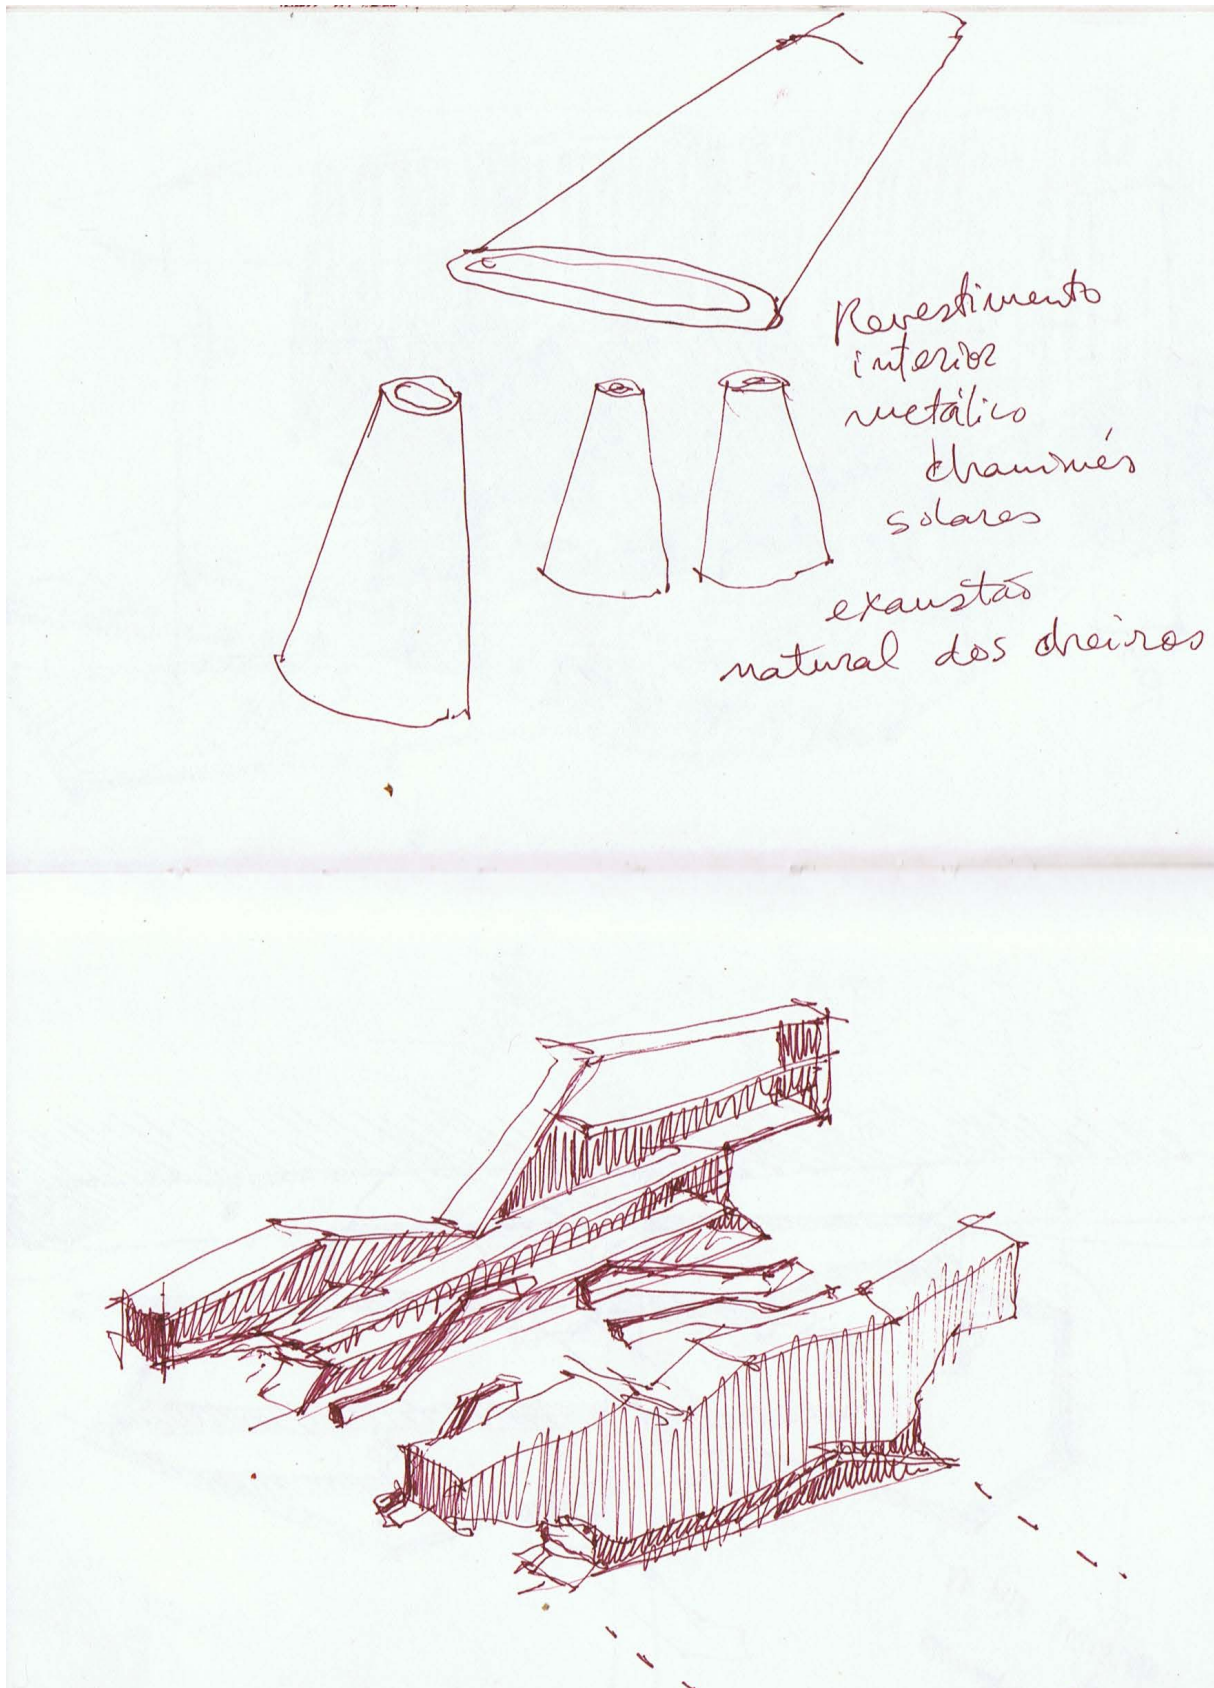 Revestimento
interior
metálico
chaminés
solares
exaustão
natural dos cheiros